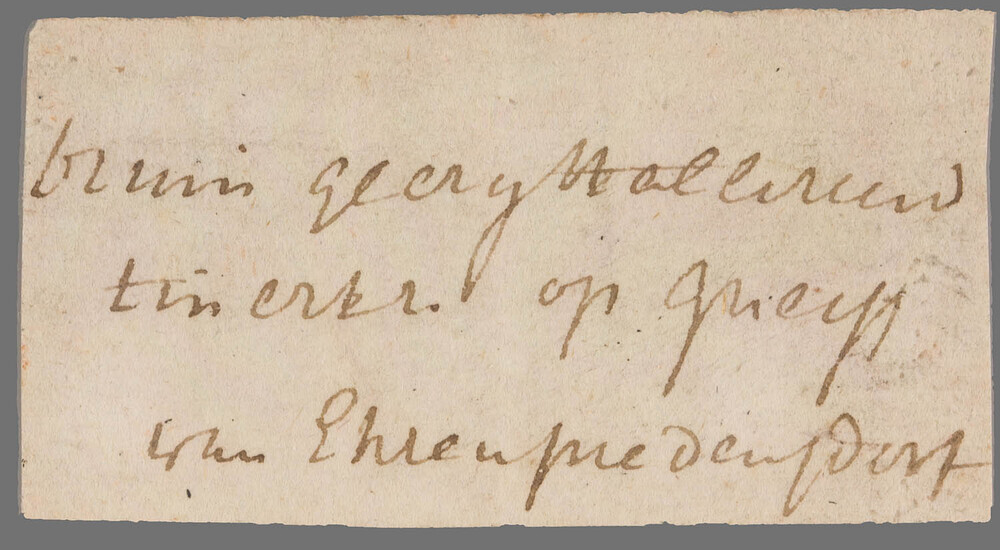 bruin geery Hallirund
tinerkr. op grieiss
van Ehrenfriedensdorf